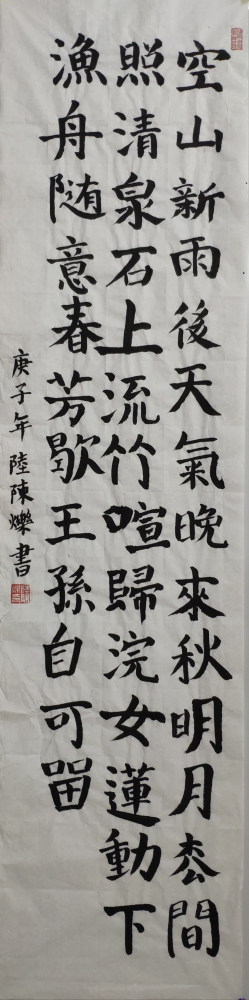 空山新雨後天氣晚來秋明月枩間
照清泉石上流竹喧歸浣女蓮動下
漁舟随意春芳歇王孫自可留
庚子年陸陳爍書